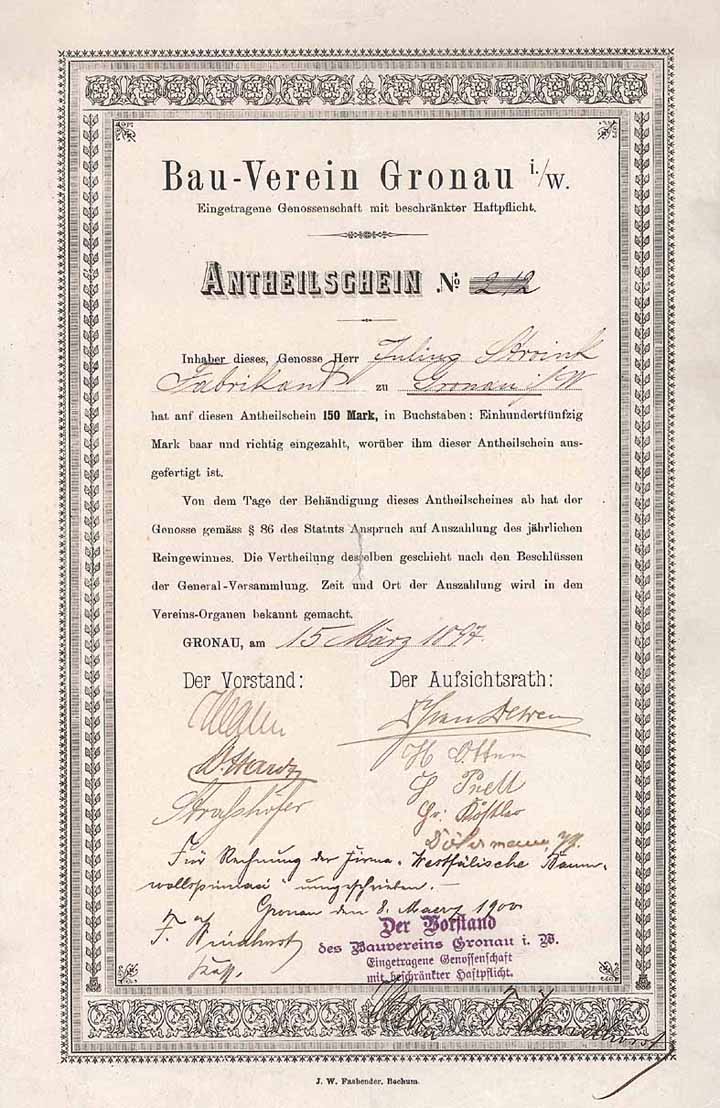 Bau-Verein Gronau i./W.
Eingetragene Genossenschaft mit beschränkter Haftpflicht.
ANTHEILSCHEIN No 212
Inhaber dieses, Genosse Herr Julius Stroink
Fabrikant zu Gronau i/W
hat auf diesen Antheilschein 150 Mark, in Buchstaben: Einhundertfünfzig
Mark baar und richtig eingezahlt, worüber ihm dieser Antheilschein aus-
gefertigt ist.
Von dem Tage der Behändigung dieses Antheilscheines ab hat der
Genosse gemäss § 86 des Statuts Anspruch auf Auszahlung des jährlichen
Reingewinnes. Die Vertheilung desselben geschieht nach den Beschlüssen
der General-Versammlung. Zeit und Ort der Auszahlung wird in den
Vereins-Organen bekannt gemacht.
GRONAU, am 15 März 1897.
Der Vorstand: Der Aufsichtsrath:
H Otten
Strasshöfer
Für Rechnung der Firma "Westfälische Baum-
wollspinnerei" umgeschrieben. —
Gronau den 8. Maerz 1900
Der Vorstand
des Bauvereins Gronau i. W.
Eingetragene Genossenschaft
mit beschränkter Haftpflicht.
J. W. Fasbender, Bochum.